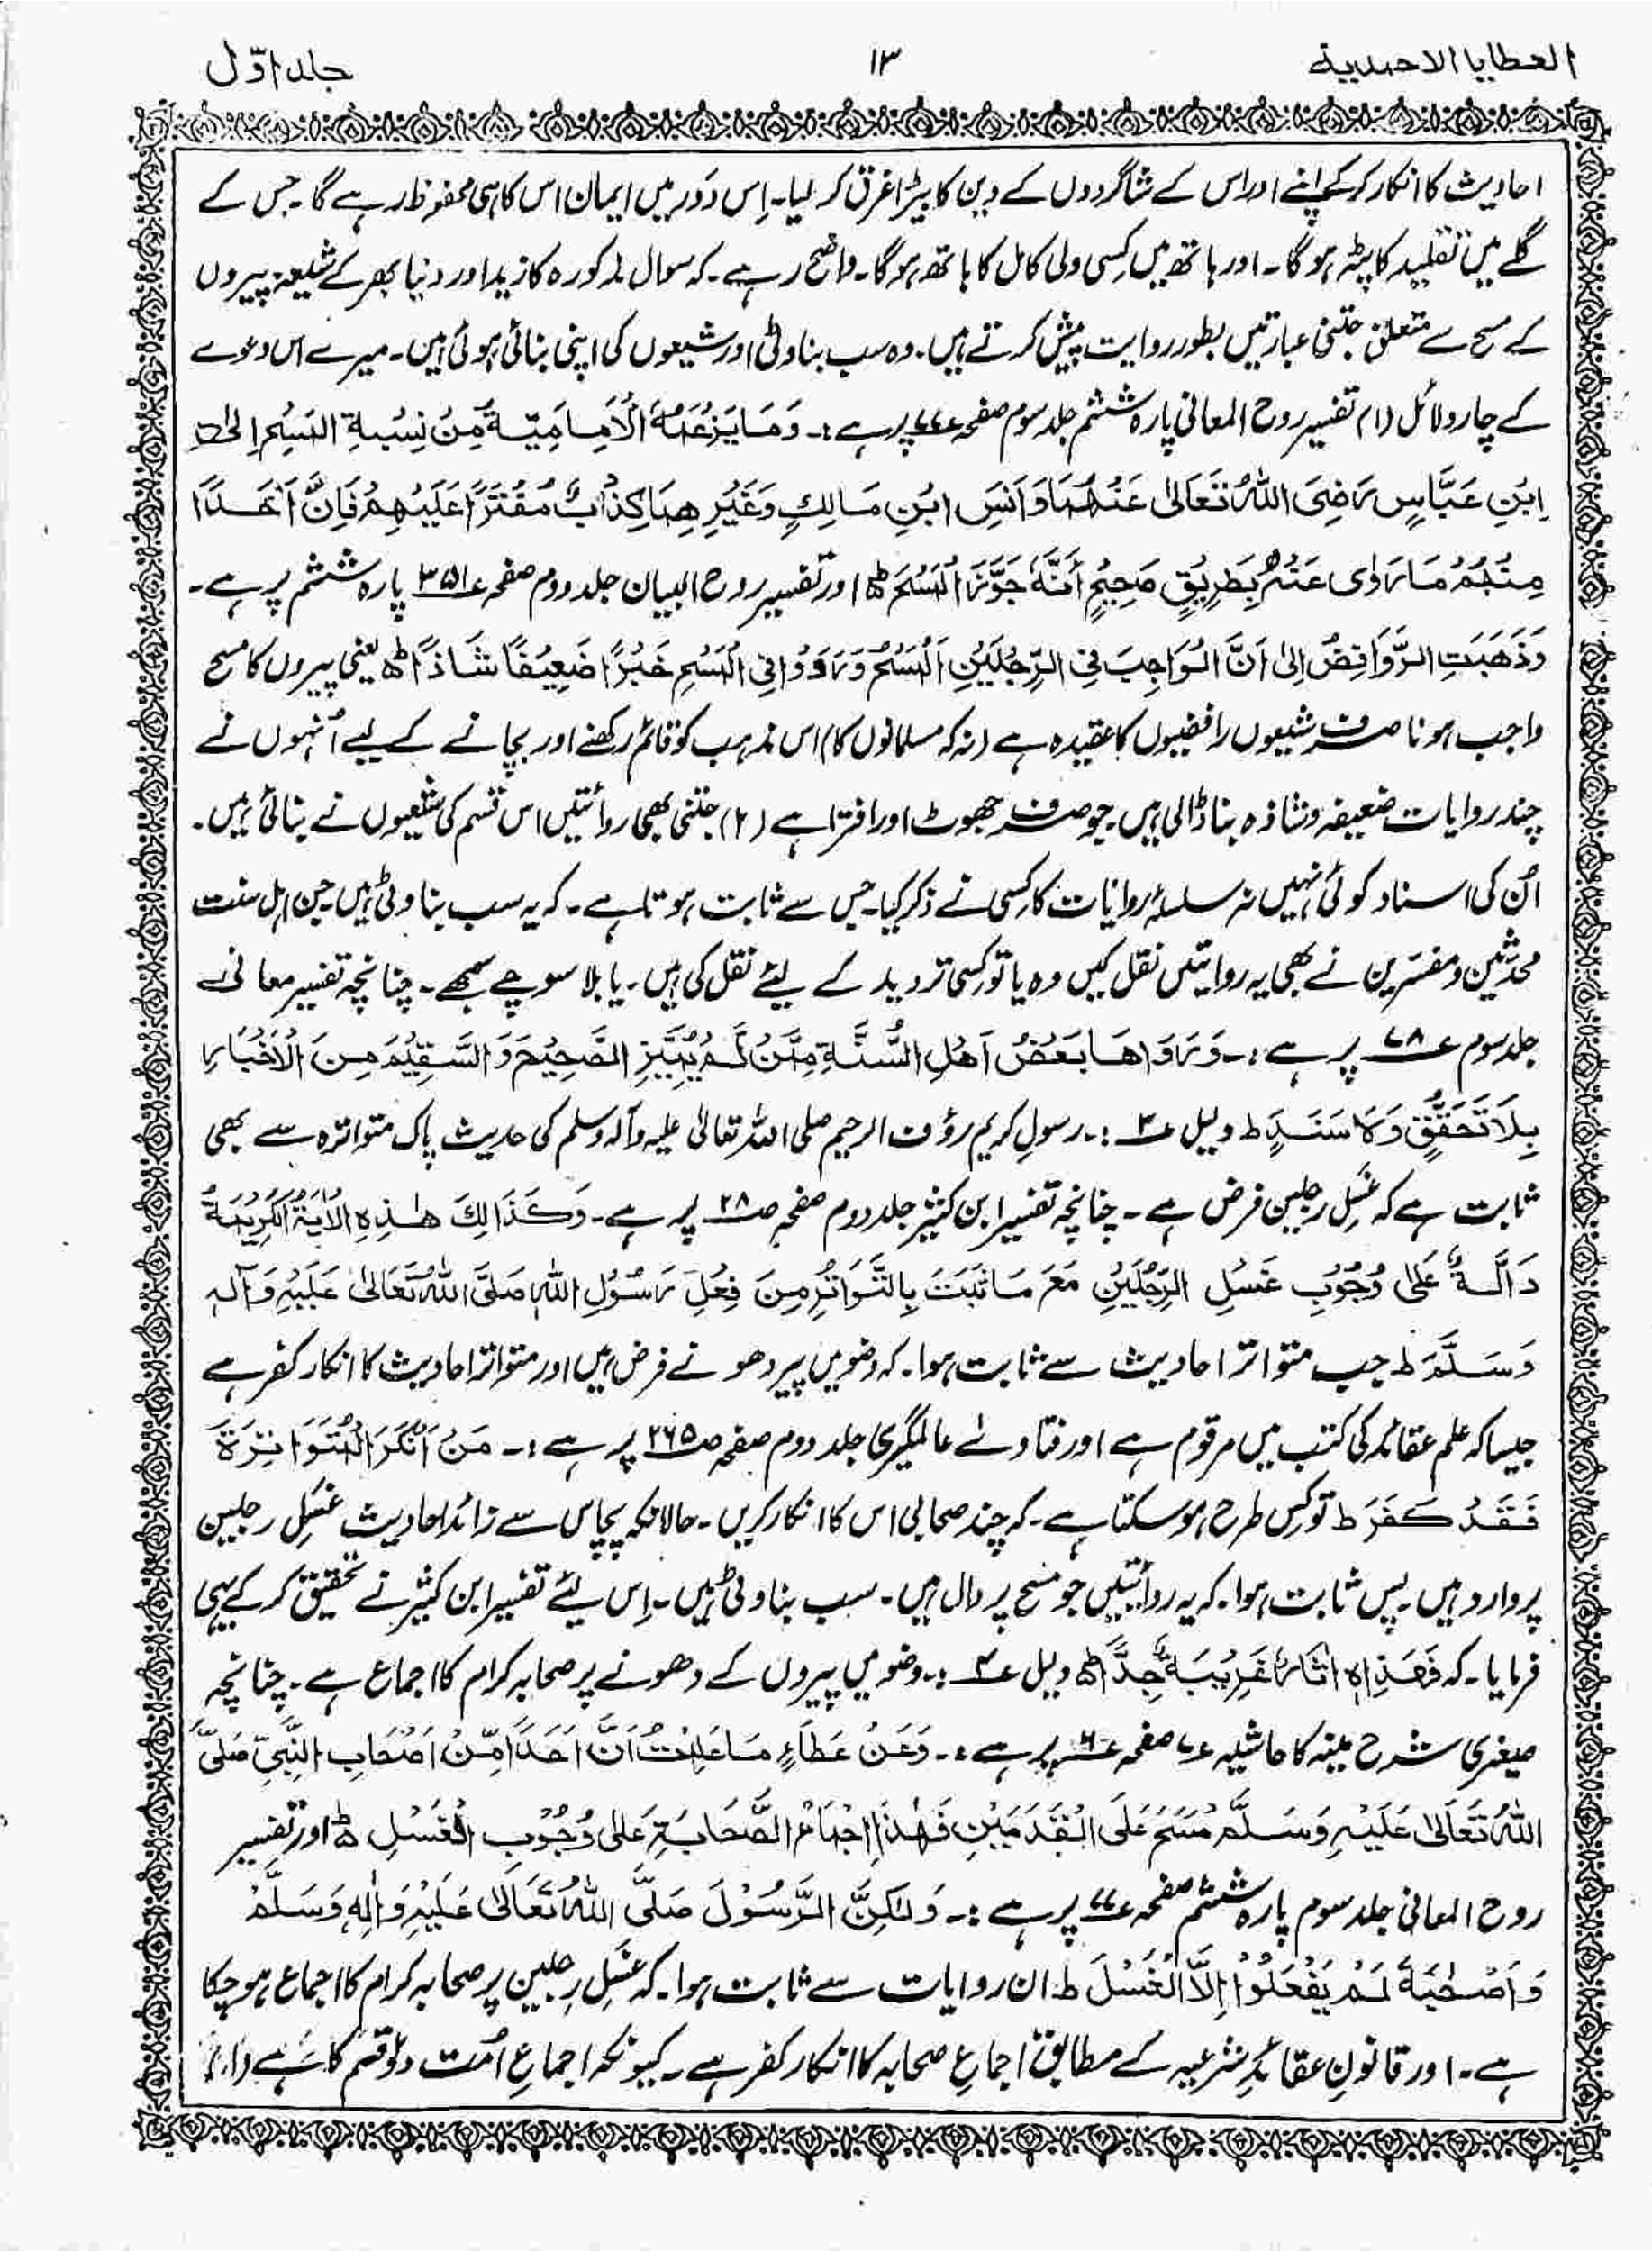 العطایا الاحمدیة ۱۳ جلد اوّل
احادیث کا انکار کر کے اپنے اور اس کے شاگردوں کے دین کا بیڑا غرق کر لیا۔ اِس دَور میں ایمان اس کا ہی محفوظ رہے گا۔ جس کے
گلے میں تقلید کا پٹہ ہو گا۔ اور ہاتھ میں کِسی ولی کامل کا ہاتھ ہو گا۔ واضح رہے۔ کہ سوال مذکورہ کا زید اور دنیا بھر کے شیعہ پیروں
کے مسح سے متعلق جتنی عبارتیں بطور روایت پیش کرتے ہیں۔ وہ سب بناوٹی اور شیعوں کی اپنی بنائی ہوئی ہیں۔ میرے اس دعوے
کے چار دلائل (۱) تفسیر روح المعانی پارہ ششم جلد سوم صفحہ ۷۷ پر ہے :۔ وَمَا یَزْعَمُهُ الْاِمَامِیَّةُ مِنْ نِسْبةِ الْمَسْحِ اِلیٰ
اِبْنِ عَبَّاسٍ رَضِیَ اللهُ تَعَالیٰ عَنْهُمَا وَ اَنَسَ ابْنِ مَالِكٍ وَ غَیْرِ هِمَا كِذْبٌ مُفْتَرًا عَلَیْهِمْ فَاِنَّ اَحَدًا
مِنْهُمْ مَا رَوٰى عَنْهُ بِطَرِیْقٍ صَحِیْحٍ اَنَّهٗ جَوَّزَ الْمَسْحَ ط اور تفسیر روح البیان جلد دوم صفحہ ۳۵۱ پارہ ششم پر ہے۔
وَذَهَبَتِ الرَّوَافِضُ اِلیٰ اَنَّ الْوَاجِبَ فِی الرِّجْلَیْنِ اَلْمَسْحُ وَ رَوَوْا فِی الْمَسْحِ خَبْرًا ضَعِیْفًا شَاذًا ط یعنی پیروں کا مسح
واجب ہونا صرف شیعوں رافضیوں کا عقیدہ ہے (نہ کہ مسلمانوں کا) اس مذہب کو قائم رکھنے اور بچانے کے لیے اُنہوں نے
چند روایات ضعیفہ و شاذہ بنا ڈالی ہیں۔ جو صرف جھوٹ اور افترا ہے (۲) جتنی بھی روائتیں اس قسم کی شیعوں نے بنائی ہیں۔
اُن کی اسناد کوئی نہیں نہ سلسلہ روایات کا کسی نے ذکر کیا۔ جس سے ثابت ہوتا ہے۔ کہ یہ سب بناوٹی ہیں جن اہل سنت
محدّثین و مفسّرین نے بھی یہ روایتیں نقل کیں وہ یا تو کِسی تردید کے لیئے نقل کی ہیں۔ یا بلا سوچے سمجھے۔ چنانچہ تفسیر معانی
جلد سوم ۷۸ پر ہے :۔ وَ رَوَاهَا بَعْضُ اَهْلِ السُّنَّةِ مِمَّنْ لَمْ یُمَیِّزِ الصَّحِیْحَ وَ السَّقِیْمَ مِنَ الْاَخْبَارِ
بِلَا تَحَقُّقٍ وَ لَا سَنَدٍ ط دلیل ۳ :۔ رسولِ کریم رؤف الرحیم صلی اللہ تعالیٰ علیہ وآلہ وسلم کی حدیث پاک متواترہ سے بھی
ثابت ہے کہ غسل رجلین فرض ہے۔ چنانچہ تفسیر ابن کثیر جلد دوم صفحہ ۲۸ پر ہے۔ وَكَذَالِكَ هٰذِهِ الْاٰیَةُ الْكَرِیْمَةُ
دَالَّةٌ عَلیٰ وُجُوْبِ غَسْلِ الرِّجْلَیْنِ مَعَ مَا ثَبَتَ بِالتَّوَاتُرِ مِنَ فِعْلِ رَسُوْلِ اللهِ صَلَّى اللهُ تَعَالیٰ عَلَیْهِ وَ آلِهٖ
وَسَلَّمَ ط جب متواتر احادیث سے ثابت ہوا۔ کہ وضو میں پیر دھونے فرض ہیں اور متواتر احادیث کا انکار کفر ہے
جیسا کہ علم عقائد کی کتب میں مرقوم ہے اور فتاوٰے عالمگیری جلد دوم صفحہ ۲۶۵ پر ہے :۔ مَنْ اَنْكَرَ الْمُتَوَاتِرَةَ
فَقَدْ كَفَرَ ط تو کِس طرح ہو سکتا ہے۔ کہ چند صحابی اس کا انکار کریں۔ حالانکہ پچاس سے زائد احادیث غسْلِ رجلین
پر وارد ہیں۔ پس ثابت ہوا۔ کہ یہ روائتیں جو مسح پر دال ہیں۔ سب بناوٹی ہیں۔ اِس لیئے تفسیر ابن کثیر نے تحقیق کر کے یہی
فرمایا۔ کہ فَهٰذِہٖ اٰثَارٌ غَرِیْبَةٌ جِدًّا ط دلیل ۴ :۔ وضو میں پیروں کے دھونے پر صحابہ کرام کا اجماع ہے۔ چنانچہ
صیغری شرح منیہ کا حاشیہ ۷ صفحہ ۶ پر ہے :۔ وَعَنْ عَطَاءٍ مَا عَلِمْتُ اَنَّ اَحَدًا مِّنْ اَصْحَابِ النَّبِیِّ صَلَّى
اللهُ تَعَالیٰ عَلَیْهِ وَسَلَّمْ مَسَحَ عَلَى الْقَدَمَیْنِ فَهٰذَا اِجْمَاعُ الصَّحَابَةِ عَلیٰ وُجُوْبِ الْغَسْلِ ط اور تفسیر
روح المعانی جلد سوم پارہ ششم صفحہ ۷۷ پر ہے :۔ وَلٰكِنَّ الرَّسُوْلَ صَلَّى اللهُ تَعَالیٰ عَلَیْهِ وَاٰلِهٖ وَسَلَّمْ
وَاَصْحٰبَهٗ لَمْ یَفْعَلُوْا اِلَّا الْغَسْلَ ط ان روایات سے ثابت ہوا۔ کہ غسْلِ رِجلین پر صحابہ کرام کا اجماع ہو چکا
ہے۔ اور قانونِ عقائدِ شرعیہ کے مطابق اجماعِ صحابہ کا انکار کفر ہے۔ کیونکہ اجماعِ اُمت دو قسم کا ہے